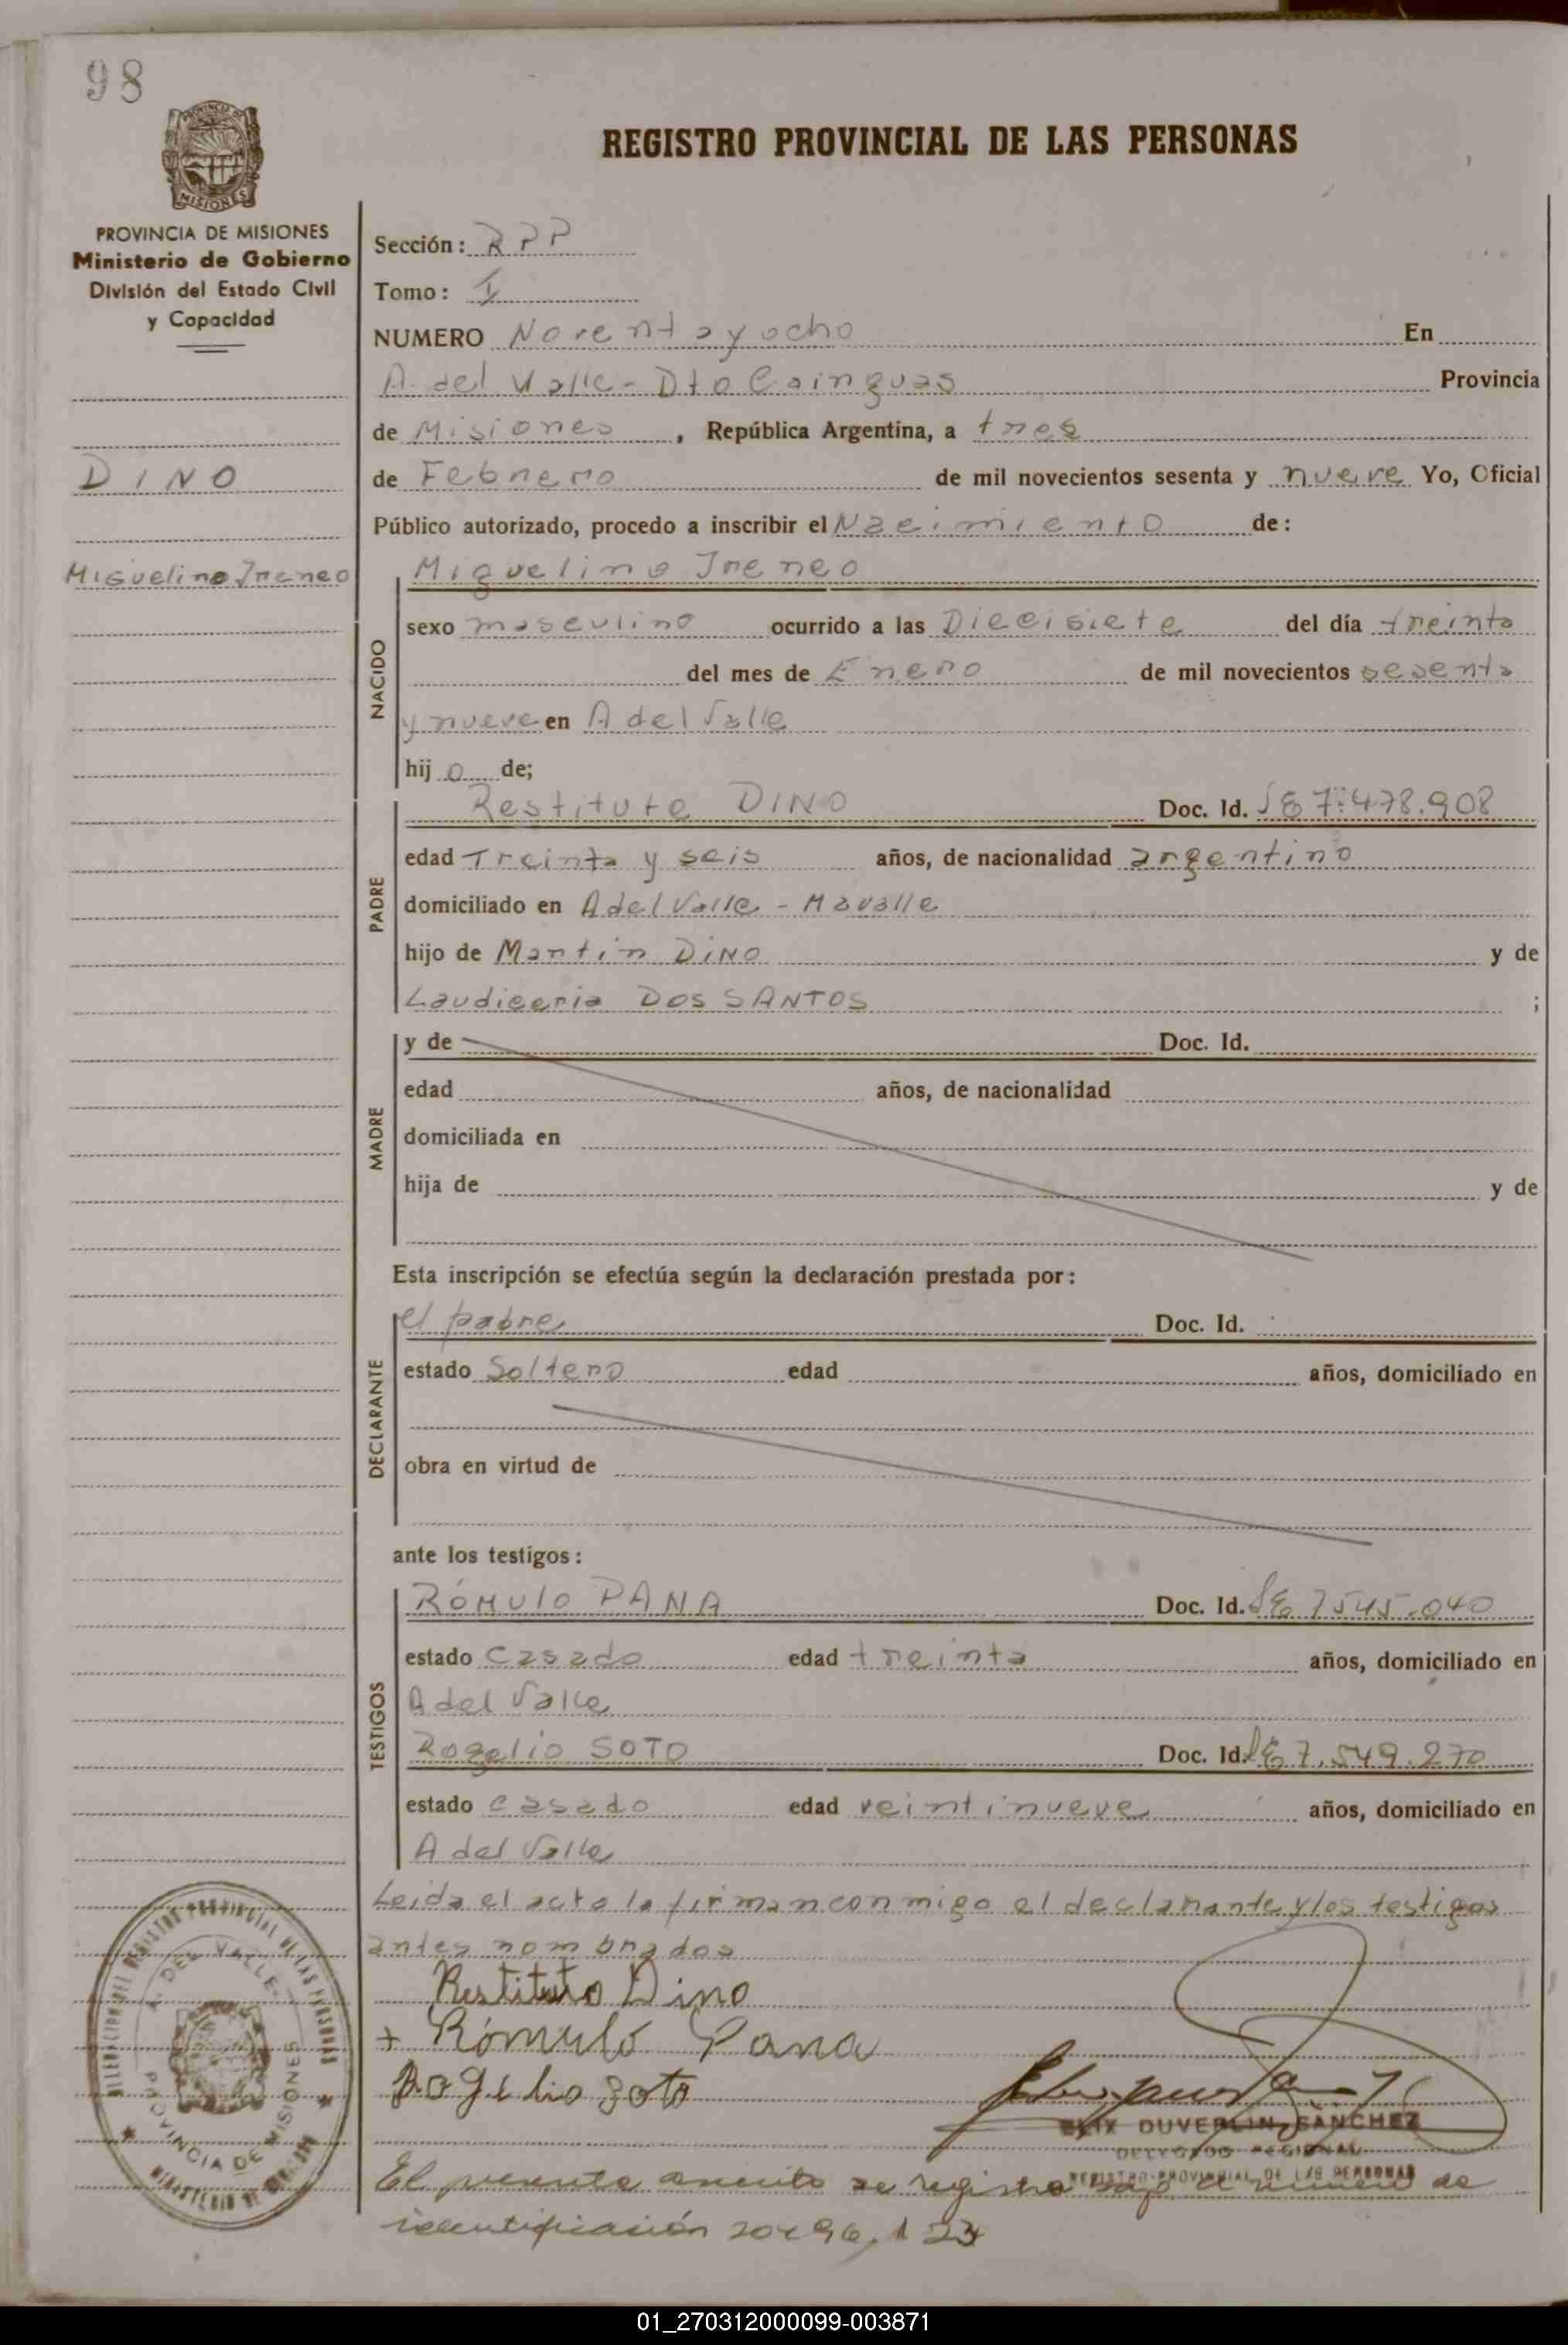 98
REGISTRO PROVINCIAL DE LAS PERSONAS
PROVINCIA DE
MISIONES
PROVINCIA DE MISIONES
Ministerio de Gobierno
División del Estado Civil
y Capacidad
DINO
Miguelino Ireneo
Sección: RPP
Tomo: I
NUMERO Noventa y ocho En
A. del Valle - Dto Cainguas Provincia
de Misiones, República Argentina, a tres
de Febrero de mil novecientos sesenta y nueve Yo, Oficial
Público autorizado, procedo a inscribir el Nacimiento de:
NACIDO
Miguelino Ireneo
sexo masculino ocurrido a las Diecisiete del día treinta
del mes de Enero de mil novecientos sesenta
y nueve en A del Valle
hijo de;
PADRE
Restituto DINO Doc. Id. LE 7.478.908
edad Treinta y seis años, de nacionalidad argentino
domiciliado en A del Valle - Mavalle
hijo de Martin DINO y de
Laudiceria DOS SANTOS ;
MADRE
y de Doc. Id.
edad años, de nacionalidad
domiciliada en
hija de y de
Esta inscripción se efectúa según la declaración prestada por:
DECLARANTE
el padre Doc. Id.
estado Soltero edad años, domiciliado en
obra en virtud de
ante los testigos:
TESTIGOS
RÓMULO PANA Doc. Id. LE 7545.040
estado Casado edad treinta años, domiciliado en
A del Valle
Rogelio SOTO Doc. Id. LE 7.549.270
estado casado edad veintinueve años, domiciliado en
A del Valle
Leida el acta la firman conmigo el declarante y los testigos
antes nombrados
Restituto Dino
+ Rómulo Pana
Rogelio Soto
ELIX DUVERLIN SANCHEZ
DELEGADO REGIONAL
REGISTRO PROVINCIAL DE LAS PERSONAS
DELEGACION DEL REGISTRO PROVINCIAL DE LAS PERSONAS
A. DEL VALLE
PROVINCIA DE MISIONES
MINISTERIO DE
El presente asiento se registra bajo el número de
identificación 20.496.123
01_270312000099-003871